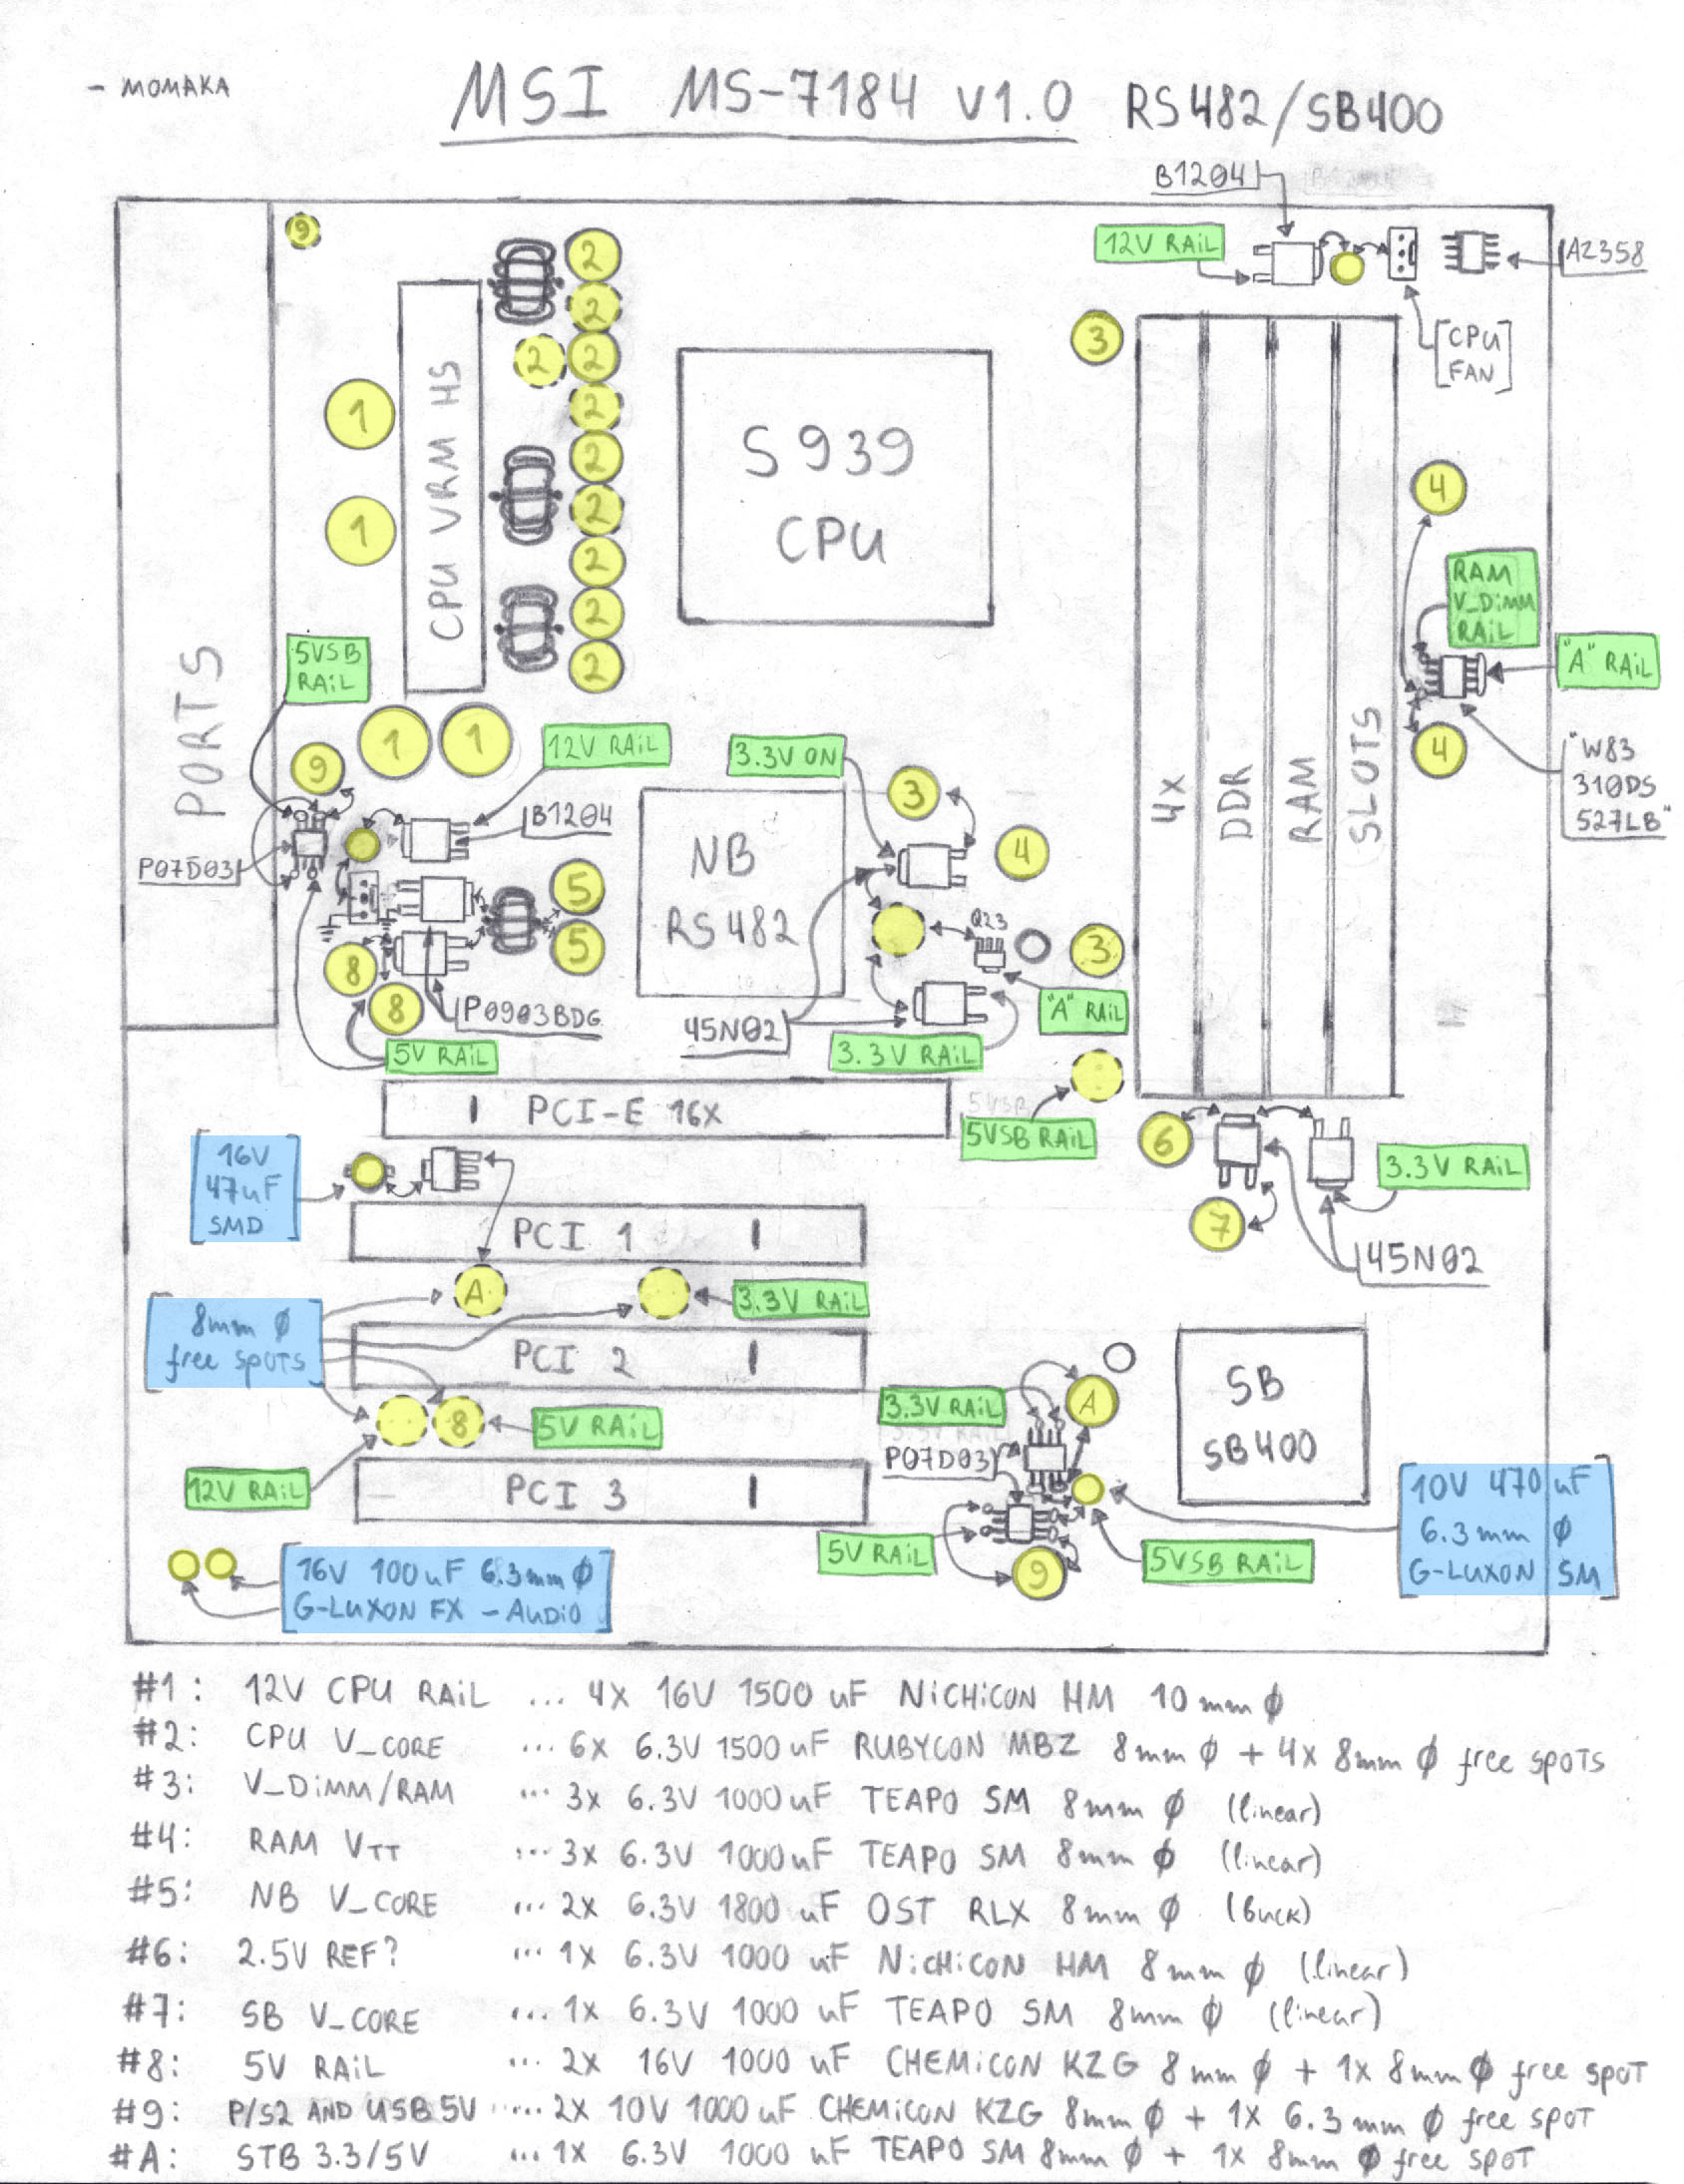 - MOMAKA
MSI MS-7184 V1.0 RS482/SB400
B1204
9
2
12V RAIL
AZ358
2
3
[CPU
FAN]
2
2
1
CPU VRM HS
2
S939
CPU
2
4
1
2
2
RAM
V_DIMM
RAIL
2
"A" RAIL
5VSB
RAIL
2
PORTS
1
1
12V RAIL
3.3V ON
4x
DDR
RAM
SLOTS
4
"W83
310DS
527LB"
9
3
B1204
NB
RS482
4
P07D03
5
Q23
5
3
8
8
P0903BDG
45N02
"A" RAIL
5V RAIL
3.3V RAIL
PCI-E 16X
5VSB
5VSB RAIL
6
3.3V RAIL
[16V
47uF
SMD]
7
PCI 1
45N02
A
3.3V RAIL
[8mm Ø
free spots]
PCI 2
SB
SB400
3.3V RAIL
A
8
5V RAIL
P07D03
12V RAIL
PCI 3
[10V 470uF
6.3mm Ø
G-LUXON SM]
5V RAIL
5VSB RAIL
9
[16V 100uF 6.3mm Ø
G-LUXON FX - AUDIO]
#1: 12V CPU RAIL ... 4X 16V 1500 uF NICHICON HM 10mm Ø
#2: CPU V_CORE ... 6X 6.3V 1500uF RUBYCON MBZ 8mm Ø + 4x 8mm Ø free spots
#3: V_DIMM/RAM ... 3X 6.3V 1000uF TEAPO SM 8mm Ø (linear)
#4: RAM VTT ... 3X 6.3V 1000uF TEAPO SM 8mm Ø (linear)
#5: NB V_CORE ... 2X 6.3V 1800 uF OST RLX 8mm Ø (buck)
#6: 2.5V REF? ... 1X 6.3V 1000 uF NICHICON HM 8mm Ø (linear)
#7: SB V_CORE ... 1X 6.3V 1000 uF TEAPO SM 8mm Ø (linear)
#8: 5V RAIL ... 2X 16V 1000 uF CHEMICON KZG 8mm Ø + 1X 8mm Ø free spot
#9: P/S2 AND USB 5V ..... 2X 10V 1000uF CHEMICON KZG 8mm Ø + 1X 6.3mm Ø free spot
#A: STB 3.3/5V ... 1X 6.3V 1000 uF TEAPO SM 8mm Ø + 1X 8mm Ø free spot